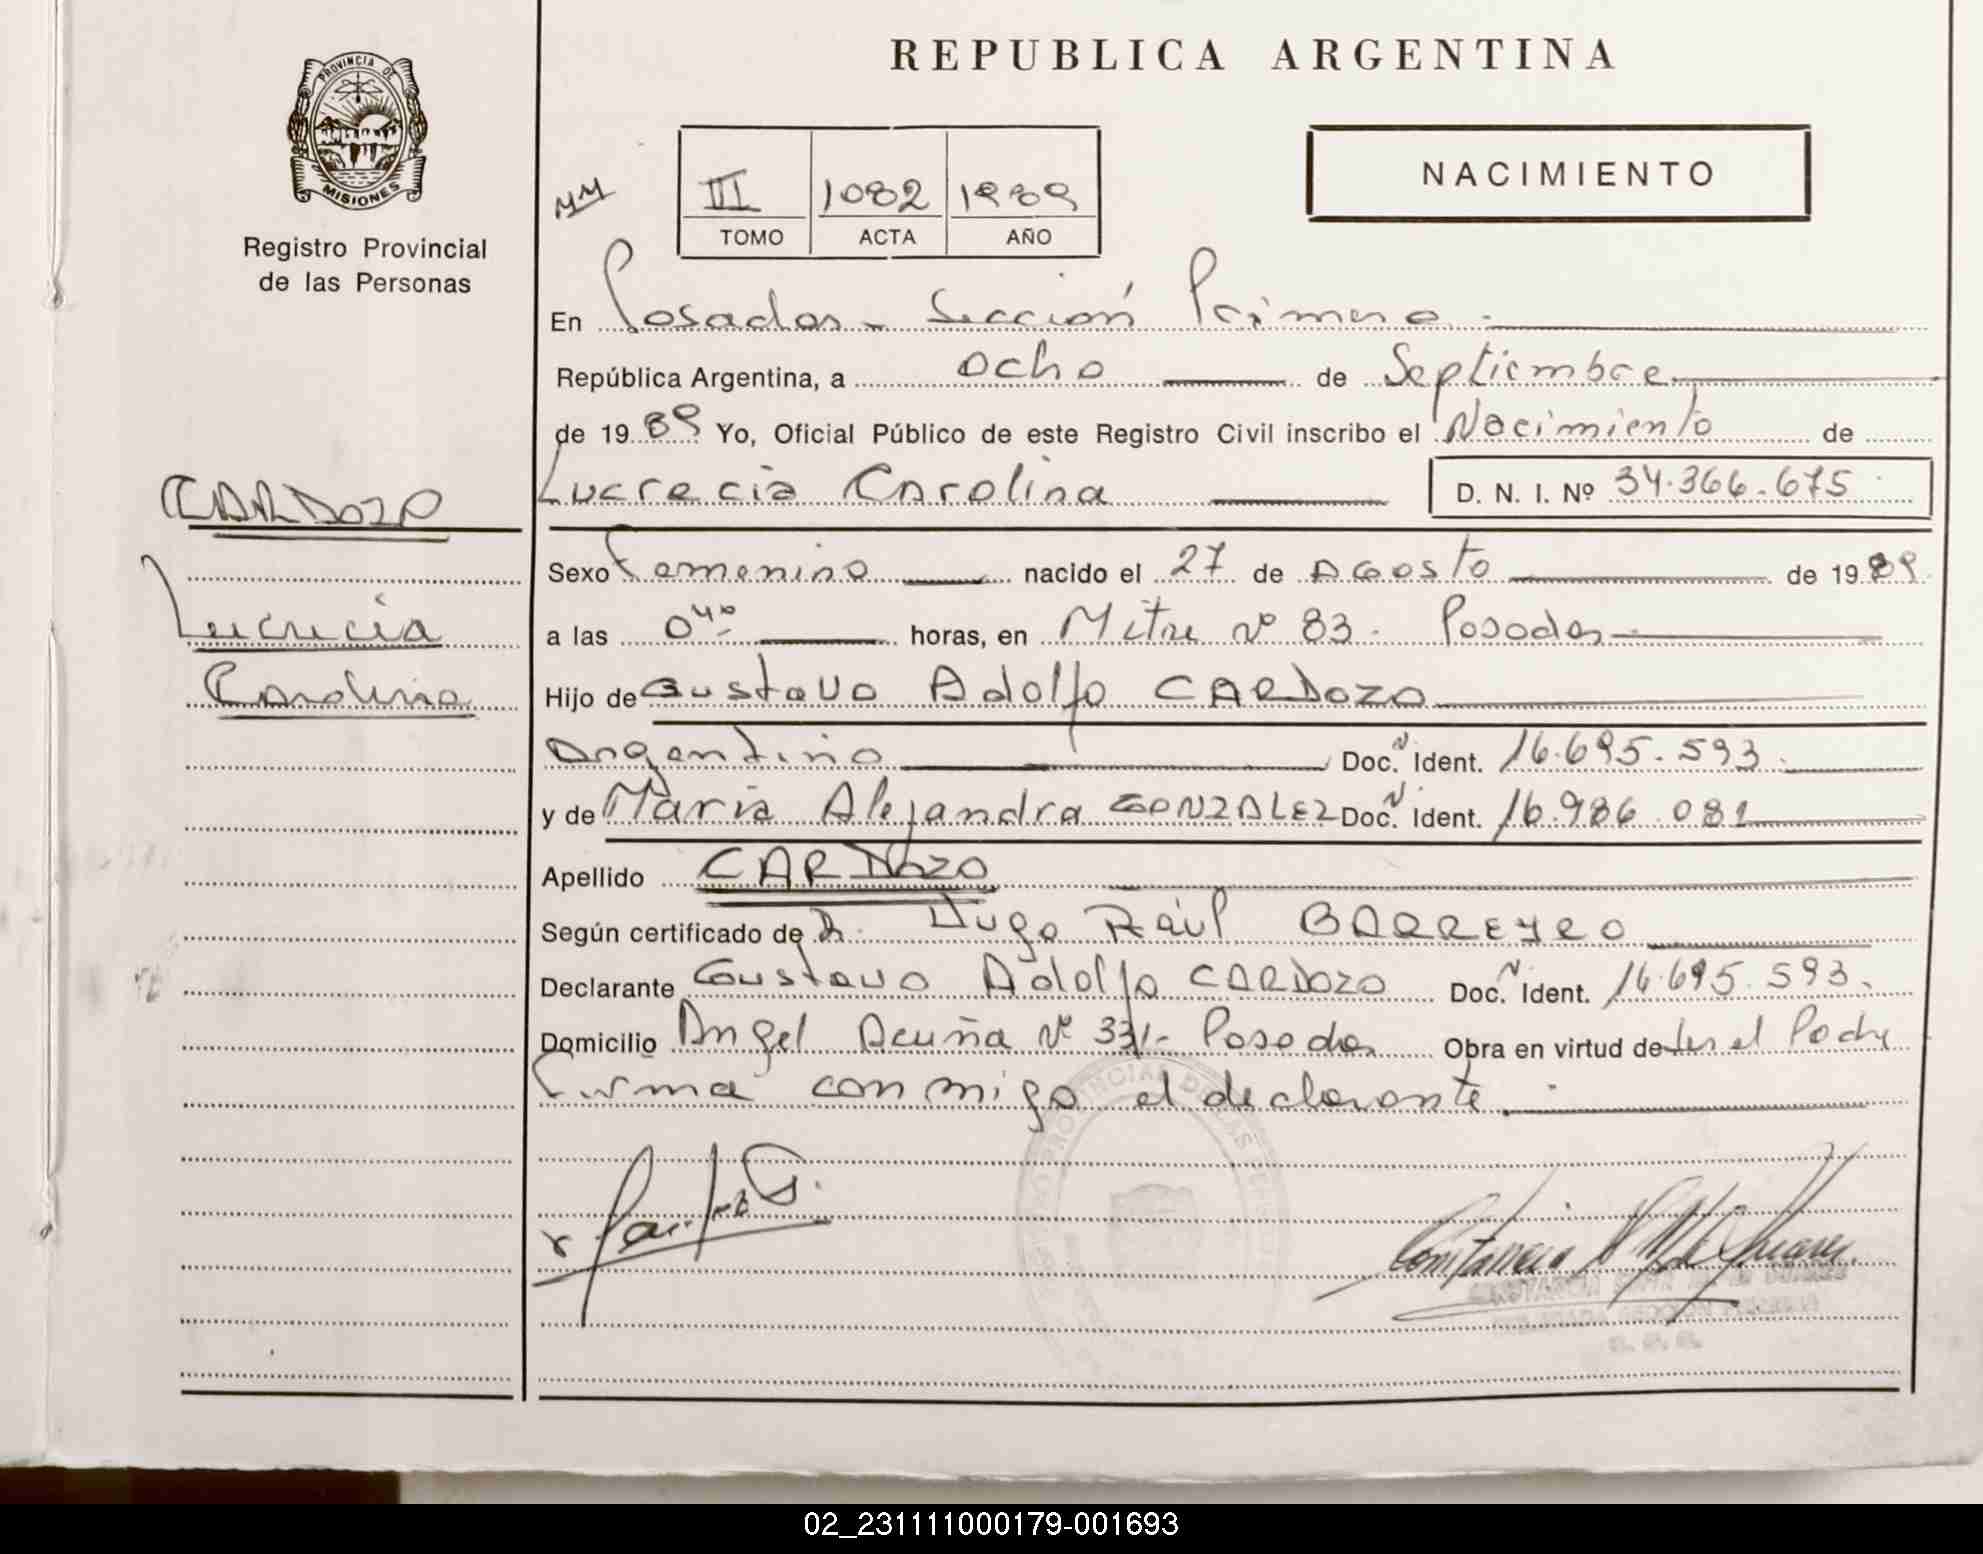 PROVINCIA DE
MISIONES
Registro Provincial
de las Personas
REPUBLICA ARGENTINA
III 1082 1989
TOMO ACTA AÑO
NACIMIENTO
En Posadas - Sección Primera.
República Argentina, a ocho de Septiembre
de 1989 Yo, Oficial Público de este Registro Civil inscribo el Nacimiento de
Lucrecia Carolina D. N. I. Nº 34.366.675
CARDOZO
Lucrecia
Carolina
Sexo Femenino nacido el 27 de Agosto de 1989
a las 04º horas, en Mitre Nº 83. Posadas
Hijo de Gustavo Adolfo CARDOZO
Argentino Doc. N Ident. 16.695.593
y de Maria Alejandra GONZALEZ Doc. N Ident. 16.986.081
Apellido CARDOZO
Según certificado de Dr. Hugo Raúl BARREYRO
Declarante Gustavo Adolfo CARDOZO Doc. N Ident. 16.695.593.
Domicilio Angel Acuña Nº 331- Posadas Obra en virtud de ser el Padre
Firma conmigo el declarante.
02_231111000179-001693